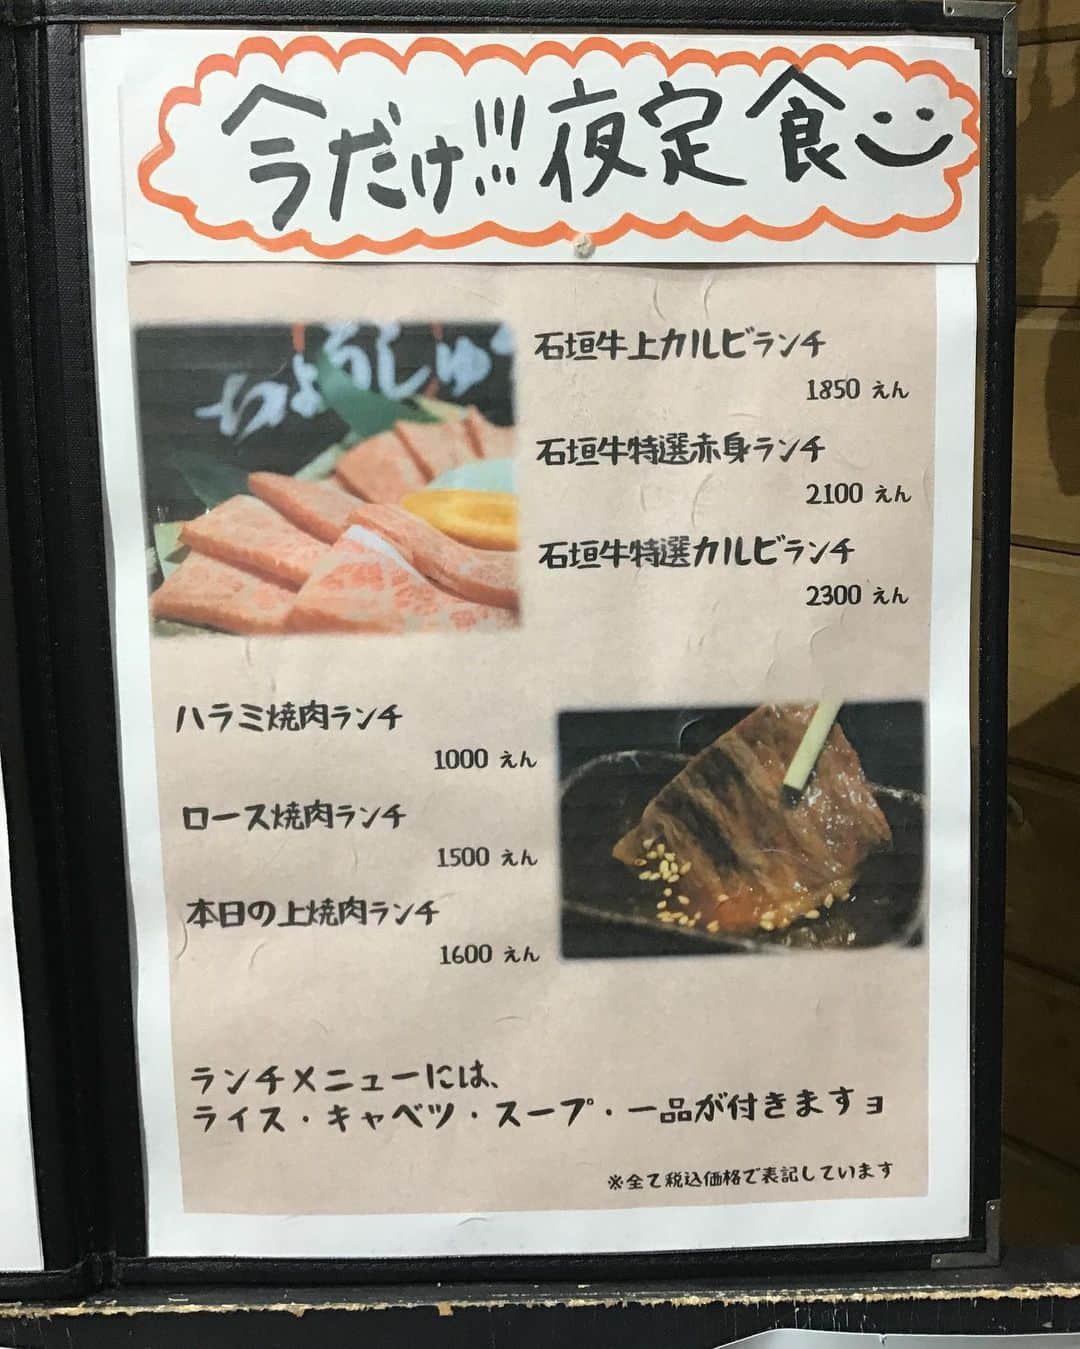 今だけ!!!夜定食
ちょうしゅ
石垣牛上カルビランチ
1850 えん
石垣牛特選赤身ランチ
2100 えん
石垣牛特選カルビランチ
2300 えん
ハラミ焼肉ランチ
1000 えん
ロース焼肉ランチ
1500 えん
本日の上焼肉ランチ
1600 えん
ランチメニューには、
ライス・キャベツ・スープ・一品が付きますョ
※全て税込価格で表記しています